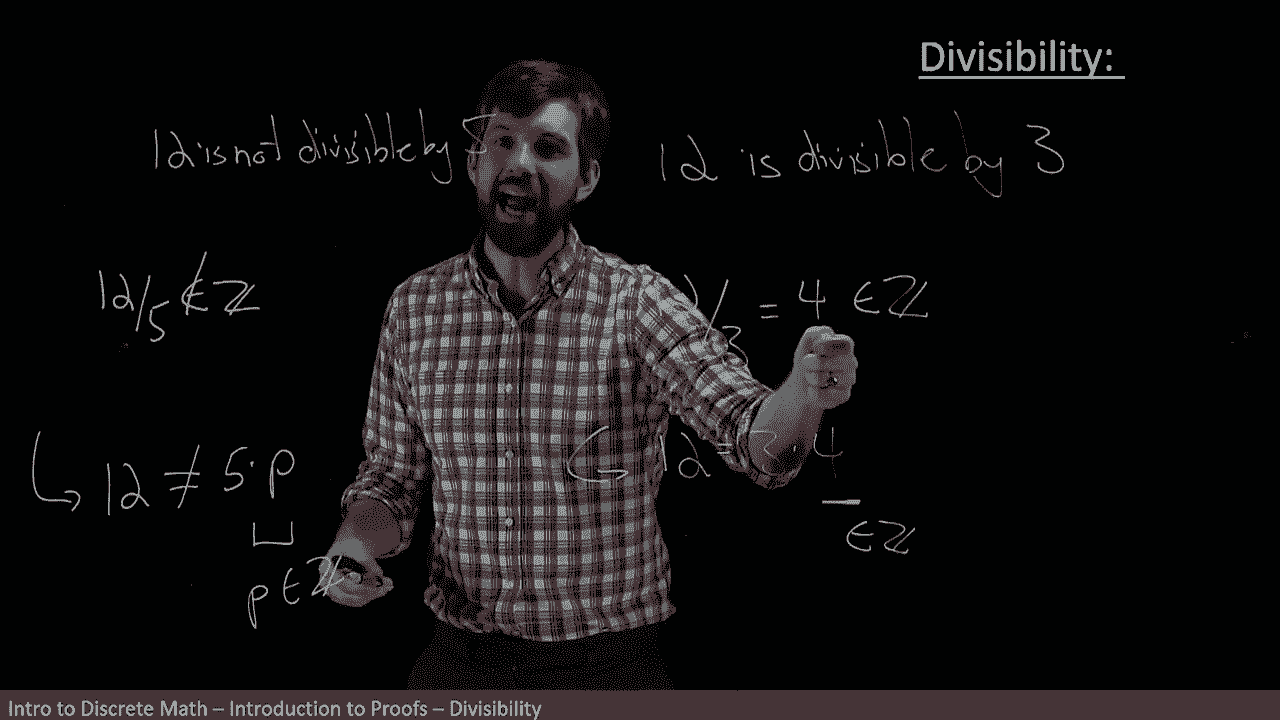 Divisibility:
12 is not divisible by 5
12 is divisible by 3
12/5 ∉ ℤ
/3 = 4 ∈ ℤ
↳ 12 ≠ 5·p
p ∈ ℤ
↳ 12 = 3 · 4
∈ ℤ
Intro to Discrete Math – Introduction to Proofs – Divisibility